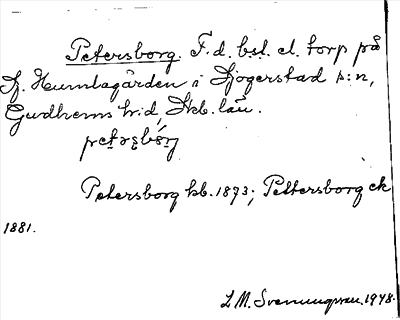 Petersborg. F.d. bst. el. torp på
St. Humlagården i Sjogerstad s:n,
Gudhems h:d, Skb. län.
Petersborg kb. 1873; Pettersborg ek
1881.
L.M. Svenungsson. 1948.